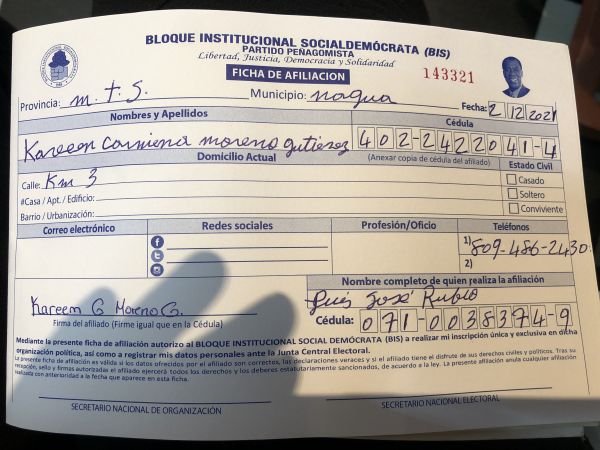 BLOQUE INSTITUCIONAL SOCIALDEMÓCRATA (BIS)
PARTIDO PEÑAGOMISTA
Libertad, Justicia, Democracia y Solidaridad
FICHA DE AFILIACION
143321
Provincia: M.T.S. Municipio: nagua Fecha: 2 12 2021
Nombres y Apellidos Cédula
Kareem Carmiena moreno gutierez 402-2422041-4
Domicilio Actual (Anexar copia de cédula del afiliado) Estado Civil
Calle: Km 3 Casado
#Casa / Apt. / Edificio: Soltero
Barrio / Urbanización: Conviviente
Correo electrónico Redes sociales Profesión/Oficio Teléfonos
1) 809-486-2430
2)
Nombre completo de quien realiza la afiliación
Luis José Rubio
Kareem G Moreno G.
Firma del afiliado (Firme igual que en la Cédula) Cédula: 071-0038374-9
Mediante la presente ficha de afiliación autorizo al BLOQUE INSTITUCIONAL SOCIAL DEMÓCRATA (BIS) a realizar mi inscripción única y exclusiva en dicha
organización política, así como a registrar mis datos personales ante la Junta Central Electoral.
La presente ficha de afiliación es válida si los datos ofrecidos por el afiliado son correctos, las declaraciones veraces y si el afiliado tiene el disfrute de sus derechos civiles y políticos. Tras su
recepción, sello y firmas autorizadas el afiliado ejercerá todos los derechos y los deberes estatutariamente sancionados, de acuerdo a la ley. La presente afiliación anula cualquier afiliación
realizada con anterioridad a la fecha que aparece en esta ficha.
SECRETARIO NACIONAL DE ORGANIZACIÓN SECRETARIO NACIONAL ELECTORAL